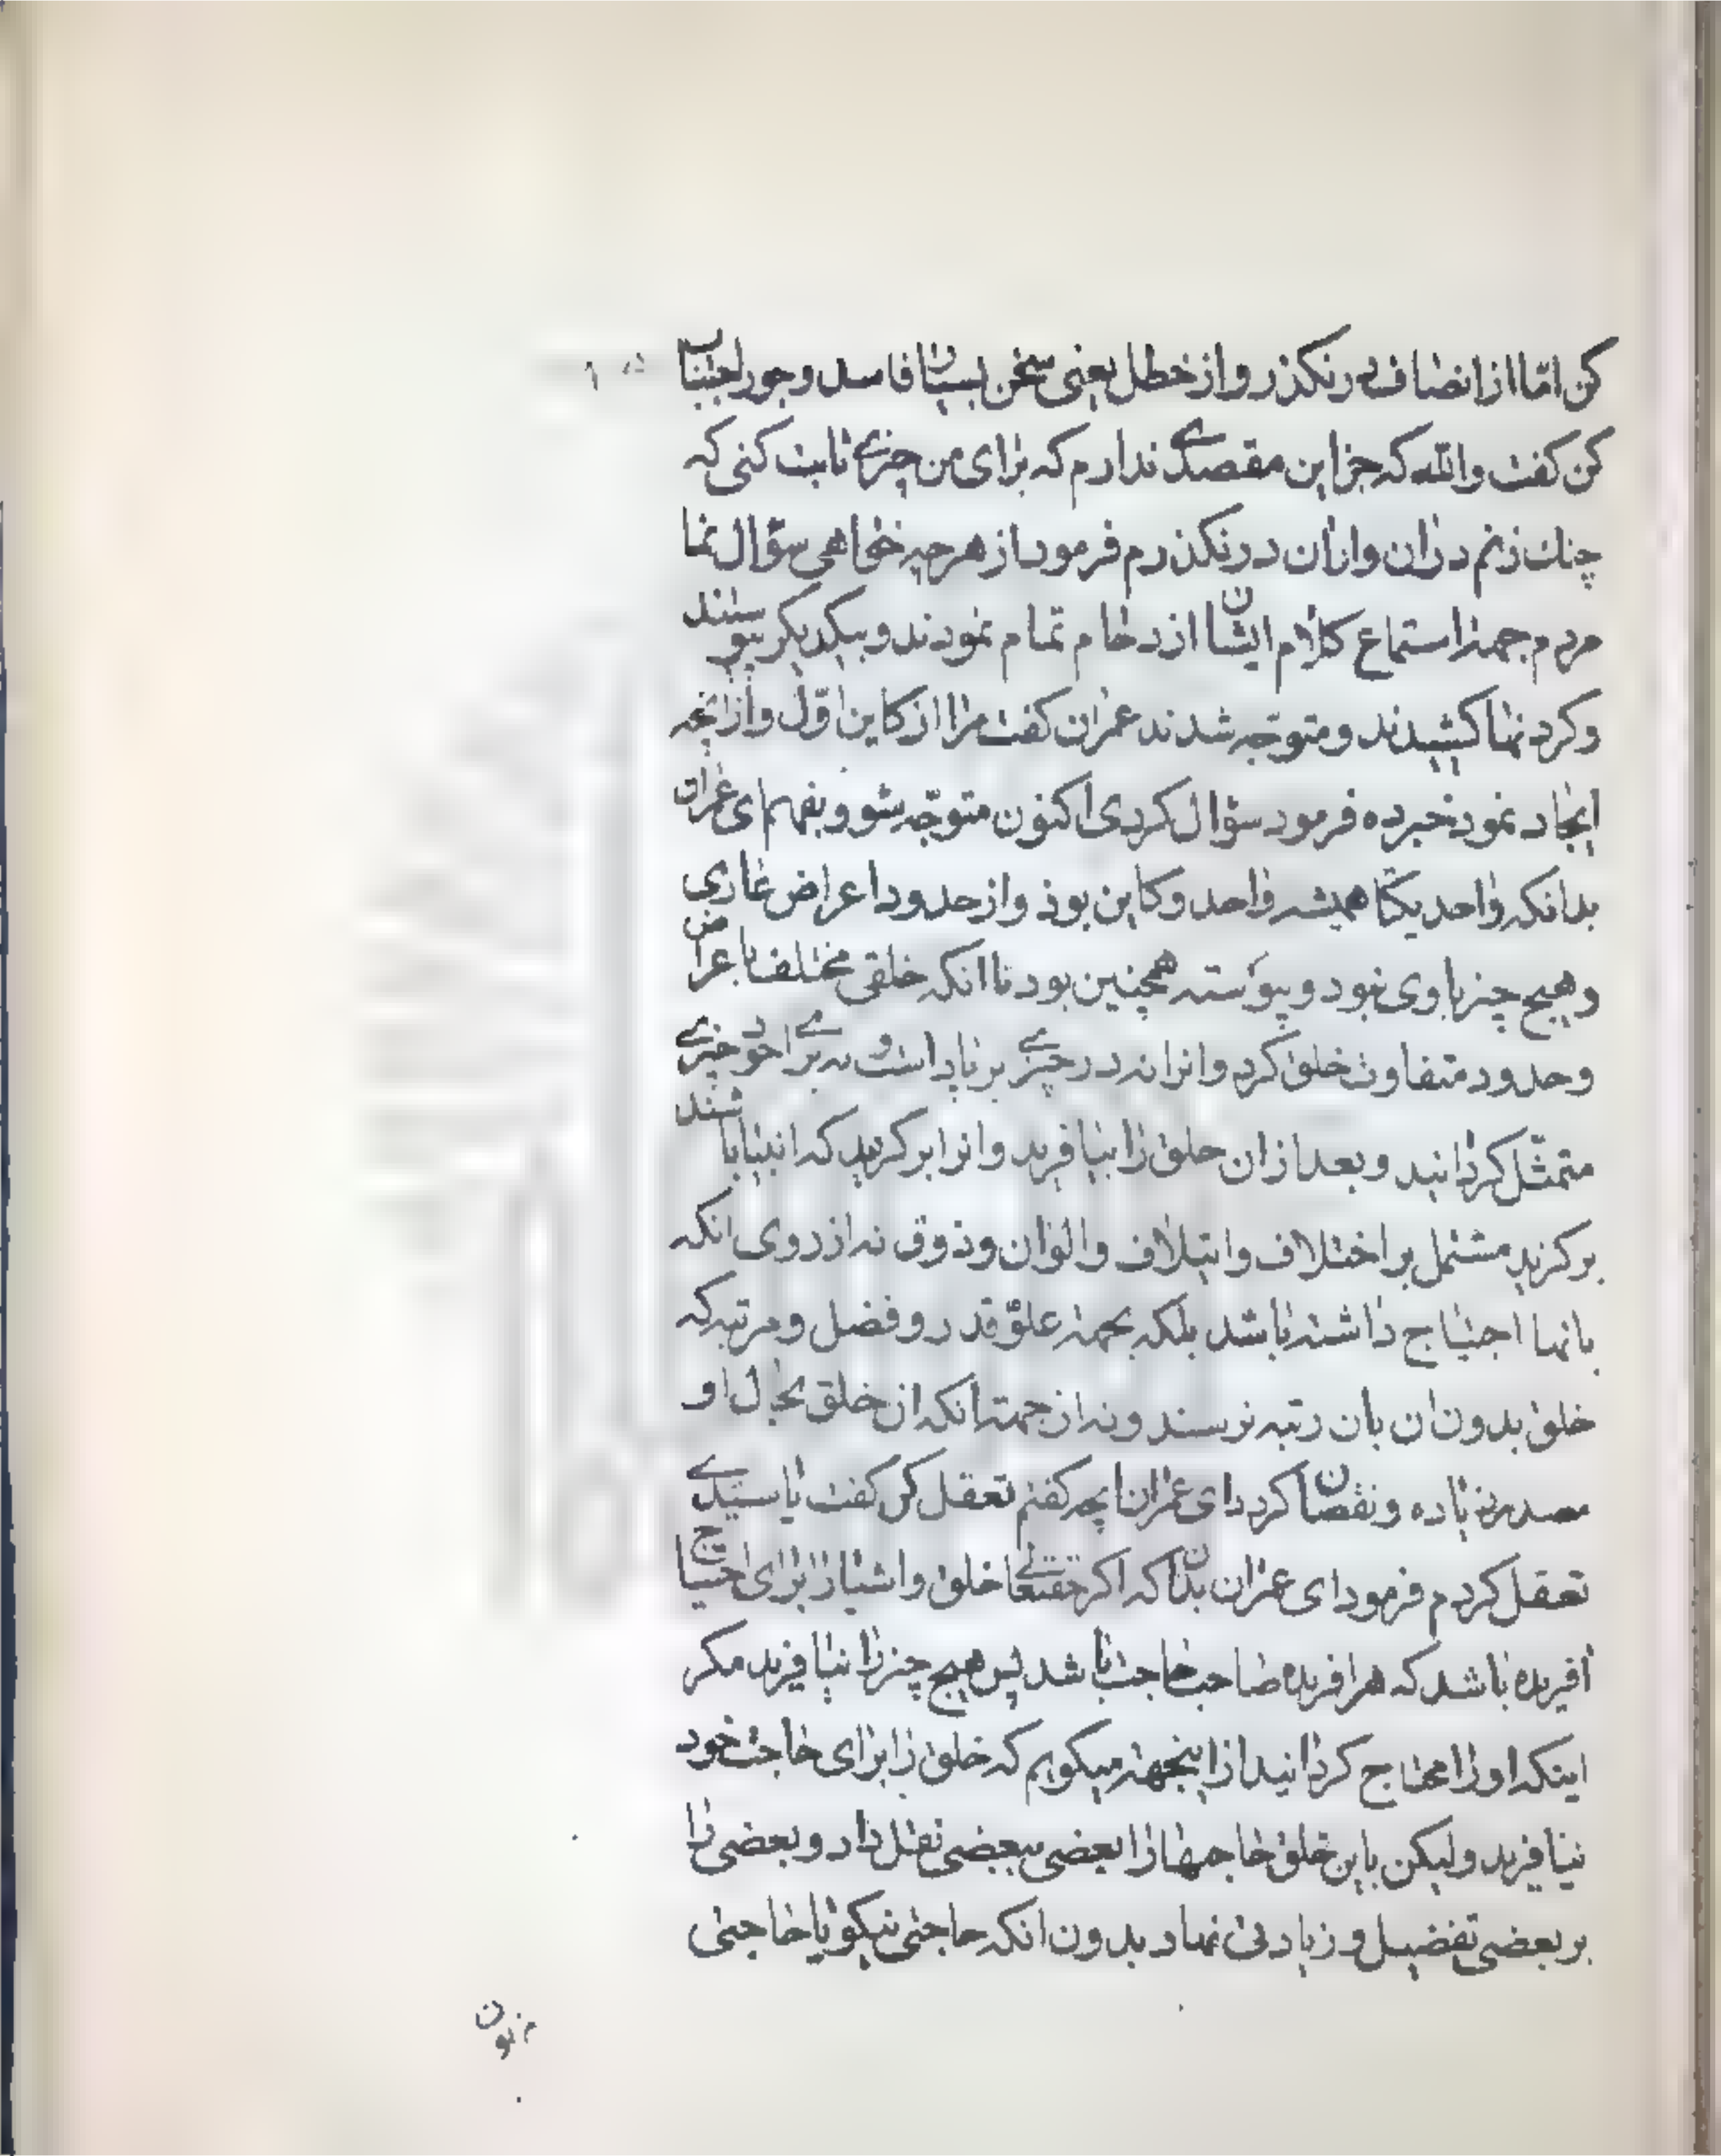 کن امّا از انصاف در نکذر و از خطل یعنی سخن بسیار فاسد و جور اجتناب
کن کفت والله که جز این مقصدی ندارم که برای من چیزی ثابت کنی که
چنك زنم در ان و از ان در نکذرم فرمود از هر چه خواهی سؤال نما
مردم جهة استماع کلام ایشان ازدحام تمام نمودند و بیکدیکر پیوستند
و کردنها کشیدند و متوجّه شدند عمران کفت مرا از کاین اوّل و از انچه
ایجاد نمود خبر ده فرمود سؤال کردی اکنون متوجّه شو و بفهم ای عمران
بدانکه واحد یکتا همیشه واحد و کاین بود و از حدود و اعراض عاری
و هیچ چیز با وی نبود و پیوسته همچنین بود تا انکه خلقی مختلف با عراض
و حدود متفاوت خلق کرد و انرا نه در چیزی بر پا داشت و نه بر احدو چیزی
متمثّل کردانید و بعد از ان خلق را بیافرید و انرا بر کزید که انبیا باشند
بر کزید مشتمل بر اختلاف و ایتلاف و الوان و ذوق نه از روی انکه
بانها احتیاج داشته باشد بلکه بجهة علوّ قدر و فضل و مرتبه که
خلق بدون ان بان رتبه نرسند و نه از جهت انکه از خلق بحال او
زیاده و نقصان کردد ای عمران انچه کفتم تعقل کن کفت یا سیّدی
تعقل کردم فرمود ای عمران بدان که اکر حقتعالی خلق و اشیا را برای احتیاج
آفریده باشد که هر افریده صاحب حاجت باشد پس هیچ چیز را نیافرید مکر
اینکه او را محتاج کردانید از اینجهة میکویم که خلق را برای حاجت خود
نیافرید و لیکن باین خلق حاجتها را بعضی ببعضی نقل داد و بعضی را
بر بعضی تفضیل و زیادتی نهاد بدون انکه حاجتی نیکو یا حاجتی